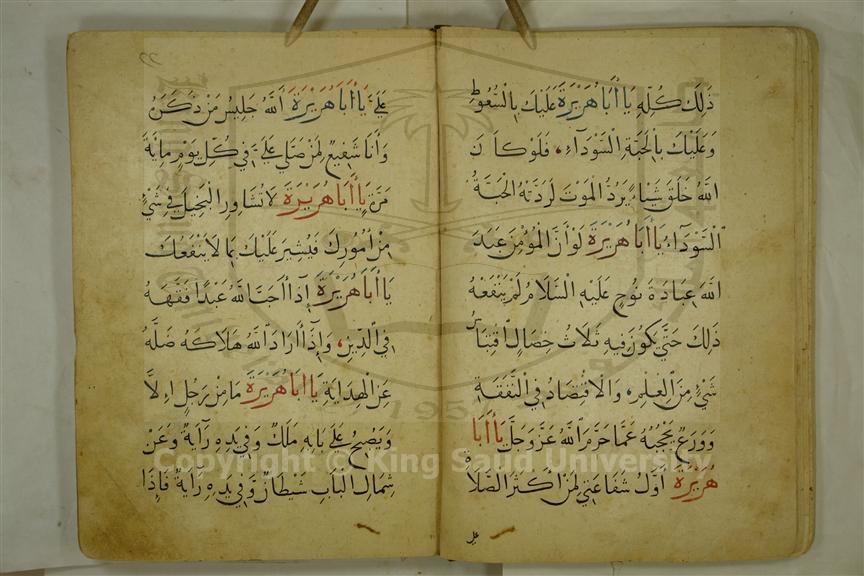 ذَلِكَ كُلِّهِ يَا أَبَا هُرَيْرَةَ عَلَيْكَ بِالسَّعُوطِ
وَعَلَيْكَ بِالْحَبَّةِ السَّوْدَآءِ، فَلَوْ كَانَ
اللهُ خَلَقَ شَيْئًا يَرُدُّ الْمَوْتَ لَرَدَّتْهُ الْحَبَّةُ
السَّوْدَآءُ يَا أَبَا هُرَيْرَةَ لَوْ أَنَّ الْمُؤْمِنَ عَبَدَ
اللهَ عِبَادَةَ نُوْحٍ عَلَيْهِ السَّلَامُ لَمْ يَنْفَعْهُ
ذَلِكَ حَتَّى يَكُوْنَ فِيهِ ثَلَاثُ خِصَالٍ اقْتِبَاسُ
شَيْءٍ مِنَ الْعِلْمِ، وَالْاِقْتِصَادُ فِي النَّفَقَةِ
وَوَرَعٌ يَحْجُبُهُ عَمَّا حَرَّمَ اللهُ عَزَّ وَجَلَّ يَا أَبَا
هُرَيْرَةَ أَوَّلُ شَفَاعَتِي لِمَنْ أَكْثَرَ الصَّلَاةَ
علي
٢٢
عَلَيَّ يَا أَبَا هُرَيْرَةَ اللهُ جَلِيسُ مَنْ ذَكَرَهُ
وَأَنَا شَفِيعٌ لِمَنْ صَلَّى عَلَيَّ فِي كُلِّ يَوْمٍ مِائَةَ
مَرَّةٍ يَا أَبَا هُرَيْرَةَ لَا تُشَاوِرِ الْبَخِيلَ فِي شَيْءٍ
مِنْ أُمُورِكَ فَيُشِيرَ عَلَيْكَ بِمَا لَا يَنْفَعُكَ
يَا أَبَا هُرَيْرَةَ إِذَا أَحَبَّ اللهُ عَبْدًا فَقَّهَهُ
فِي الدِّينِ، وَإِذَا أَرَادَ اللهُ هَلَاكَهُ ضَلَّهُ
عَنِ الْهِدَايَةِ يَا أَبَا هُرَيْرَةَ مَا مِنْ رَجُلٍ إِلَّا
وَيُصْبِحُ عَلَى بَابِهِ مَلَكٌ وَفِي يَدِهِ رَآيَةٌ وَعَنْ
شِمَالِ الْبَابِ شَيْطَانٌ وَفِي يَدِهِ رَآيَةٌ فَإِذَا
1957
Copyright © King Saud University